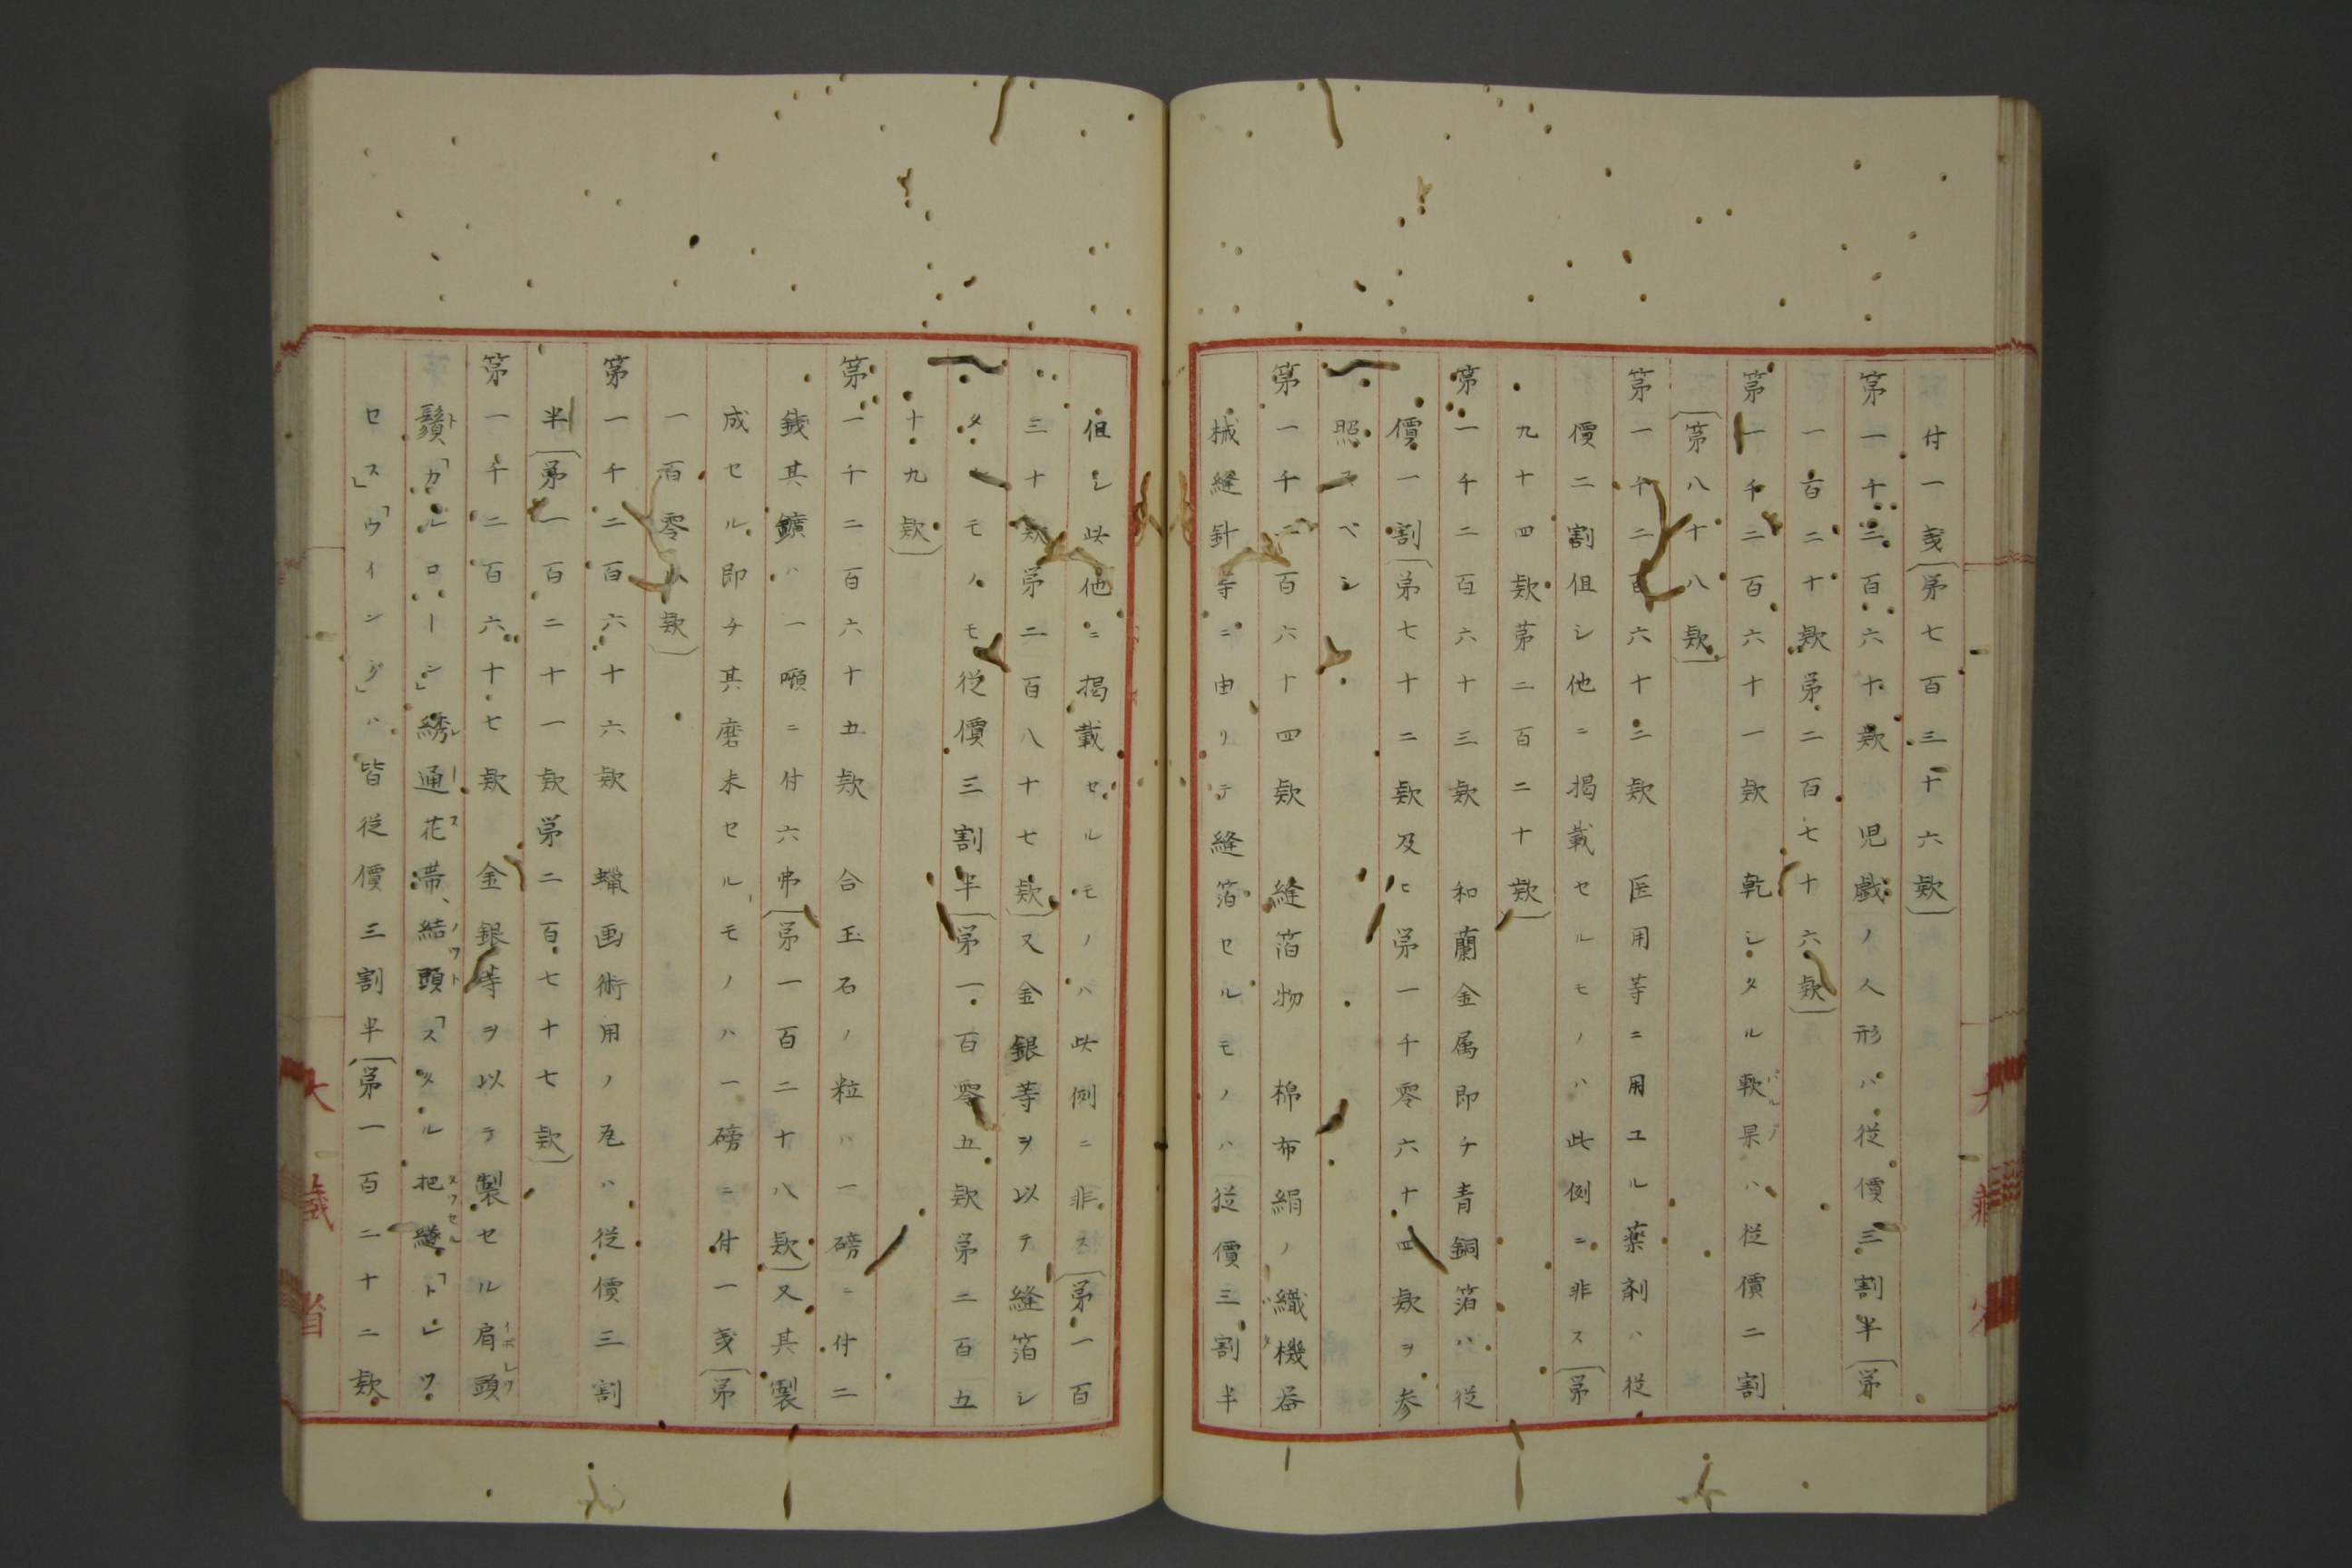 付一戔〔第七百三十六款〕
第一千二百六十款 児戯ノ人形ハ従價三割半〔第
一百二十款第二百七十六款〕
第一千二百六十一款 乾シタル軟果ハ従價二割
〔第八十八款〕
第一千二百六十二款 医用等ニ用ユル薬剤ハ従
價二割但シ他ニ掲載セルモノハ此例ニ非ス〔第
九十四款第二百二十款〕
第一千二百六十三款 和蘭金属即チ青銅箔ハ従
價一割〔第七十二款及ヒ第一千零六十四款ヲ参
照スベシ
第一千二百六十四款 縫箔物 棉布絹ノ織機器
械縫針等ニ由リテ縫箔セルモノハ従價三割半
但シ此他ニ掲載セルモノハ此例ニ非ス〔第一百
三十款第二百八十七款〕又金銀等ヲ以テ縫箔シ
タルモノモ従價三割半〔第一百零五款第二百五
十九款〕
第一千二百六十五款 合玉石ノ粒ハ一磅ニ付二
銭其鑛ハ一噸ニ付六弗〔第一百二十八款〕又其製
成セル即チ其磨末セルモノハ一磅ニ付一戔〔第
一百零八款〕
第一千二百六十六款 蠟画術用ノ瓦ハ従價三割
半〔第一百二十一款第二百七十七款〕
第一千二百六十七款 金銀等ヲ以テ製セル肩頭
鬚「カルローン」綉通花滞、結頭「スタル把縫「トレツ
セス」「ウインジ」ハ皆従價三割半〔第一百二十二款
大藏省